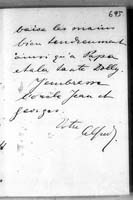 695
baise les mains
bien tendrement
ainsi qu'à Papa
et à la tante Dolly.
J'embrasse
Cécile Jean et
Georges.
Votre